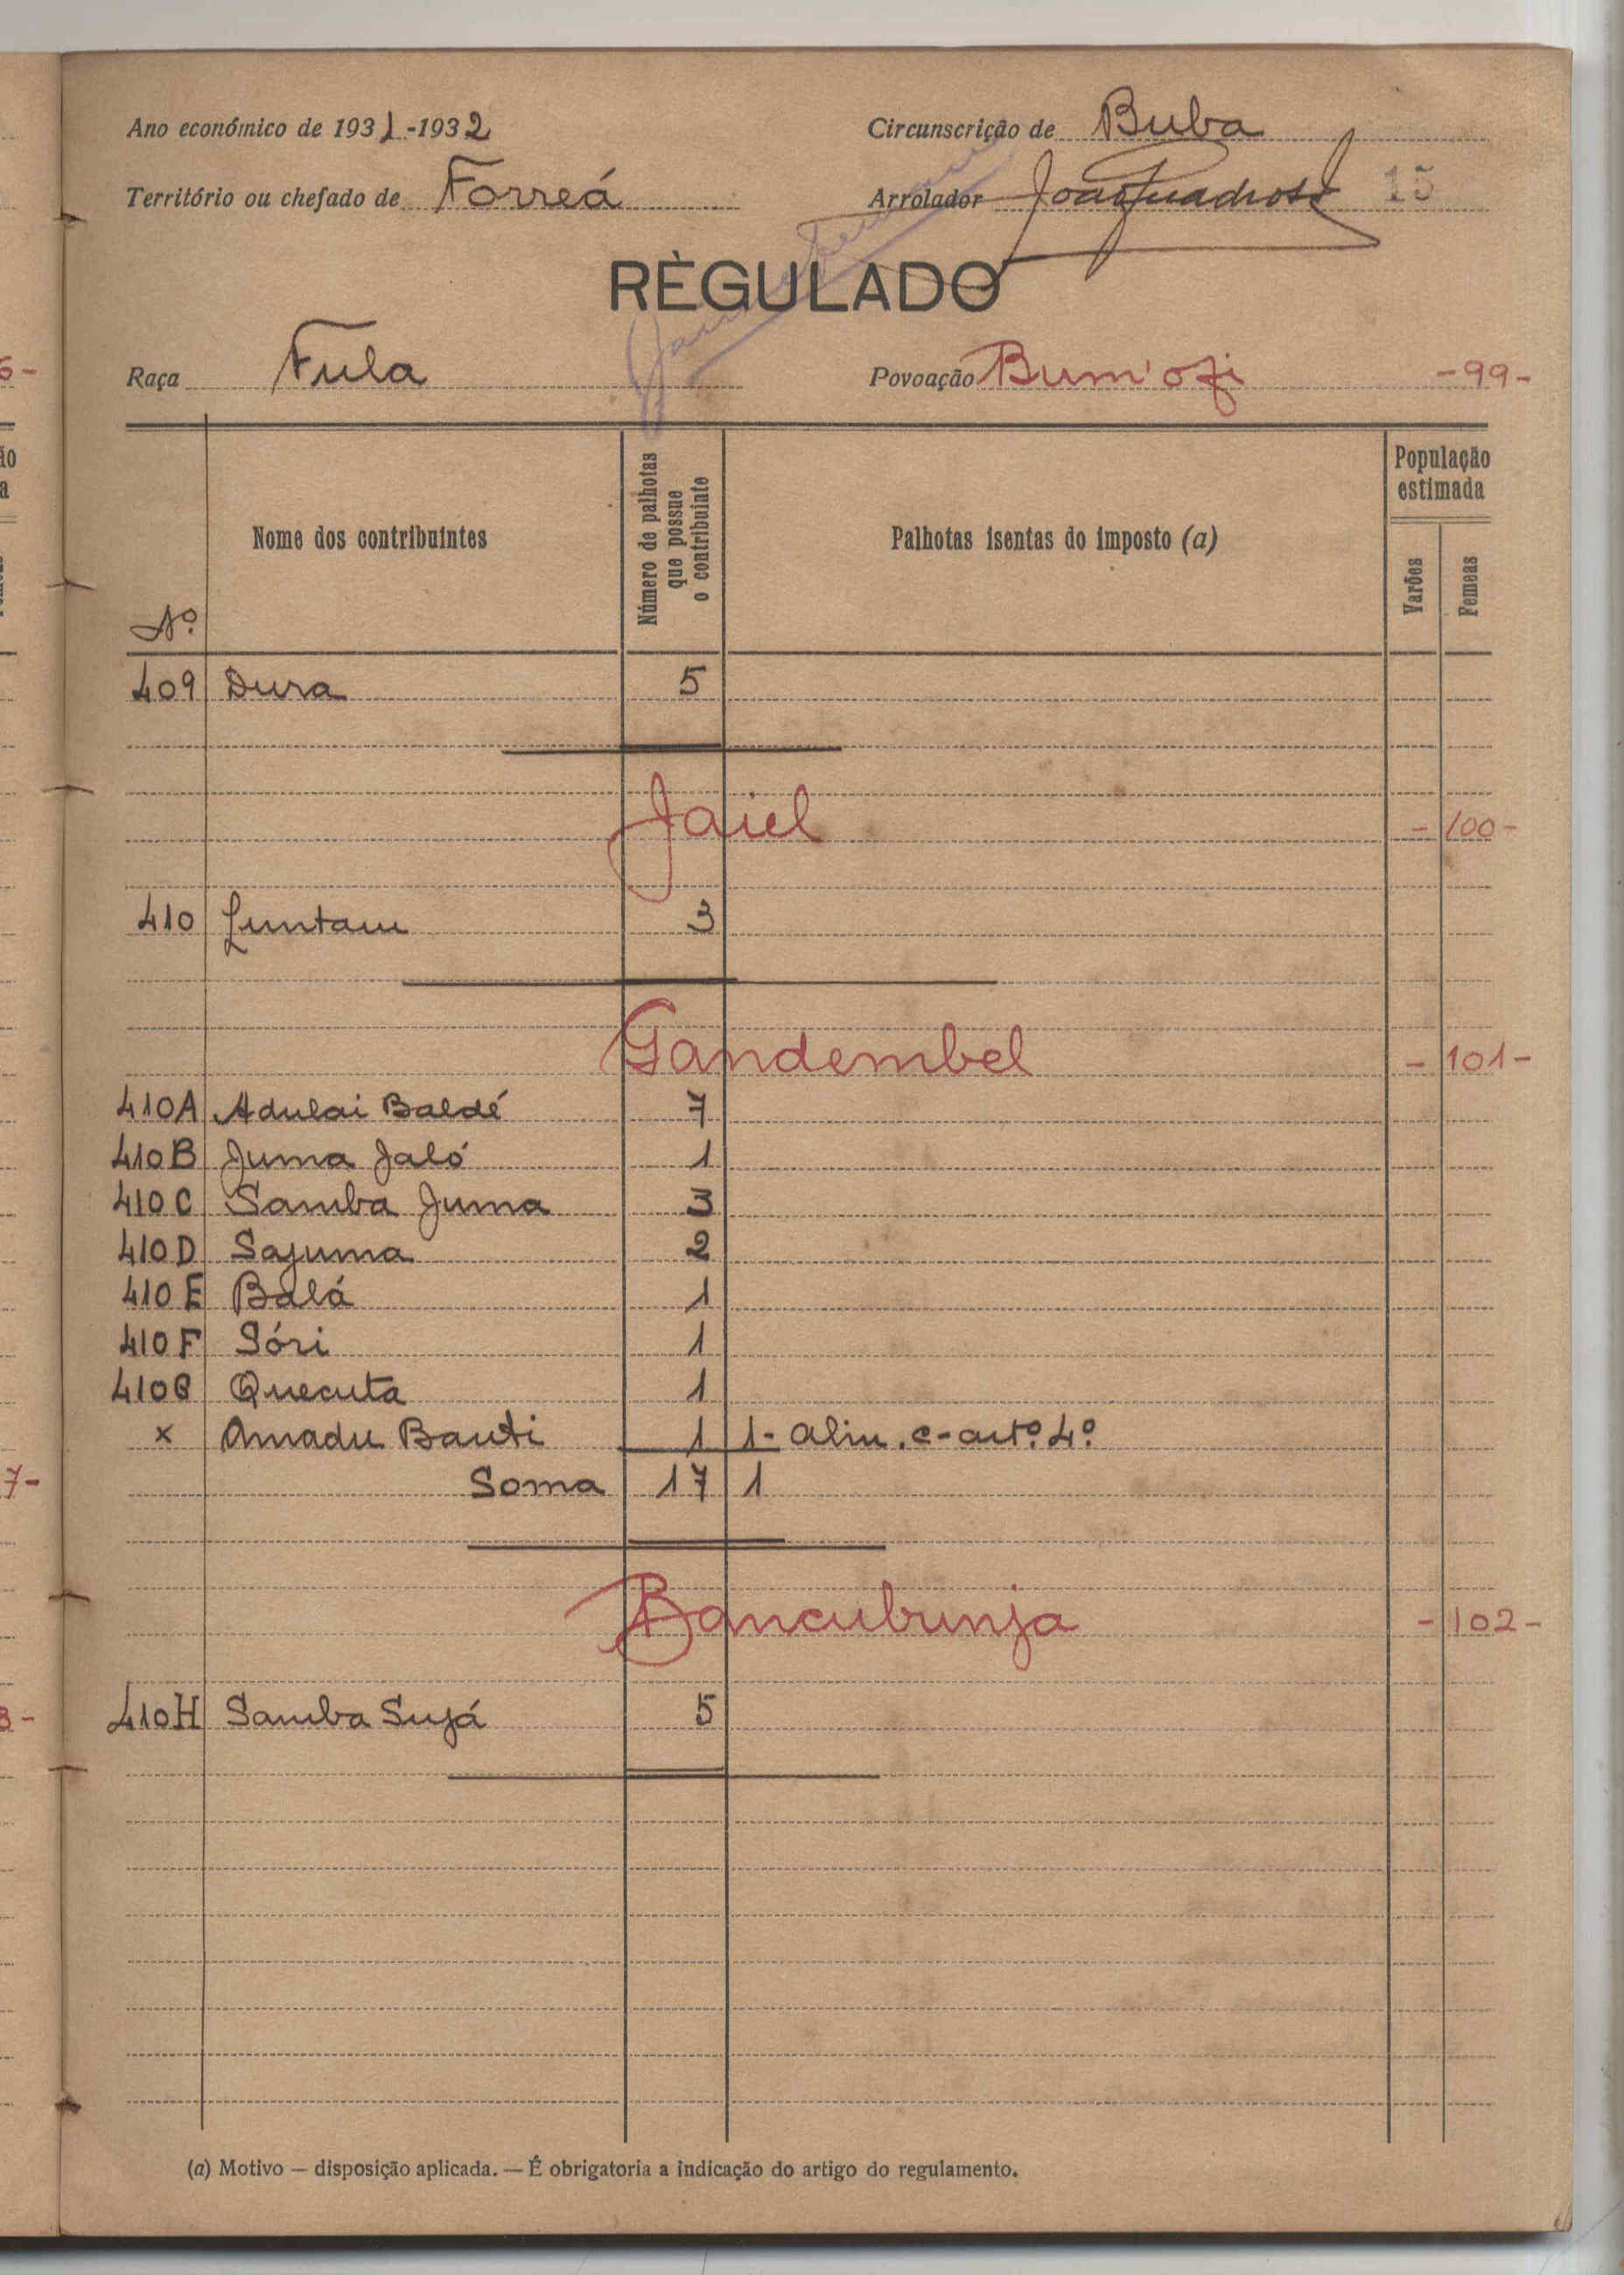 Ano económico de 1931-1932
Circunscrição de Buba
Território ou chefado de Forreá
Arrolador
15
RÈGULADO
Raça Fula
Povoação Bum'ofi -99-
Nº
Nome dos contribuintes
Número de palhotas que possue o contribuinte
Palhotas isentas do imposto (a)
População estimada
Varões
Femeas
409 Dura 5
Jaiel -100-
410 Luntam 3
Gandembel -101-
410A Adulai Baldé 7
410B Juma Jaló 1
410C Samba Juma 3
410D Sajuma 2
410E Balá 1
410F Sóri 1
410G Quecuta 1
x Amadu Bauti 1 1- alin. c-artº. 4º
Soma 17 1
Bancubunja -102-
410H Samba Sujá 5
(a) Motivo — disposição aplicada. — É obrigatoria a indicação do artigo do regulamento.